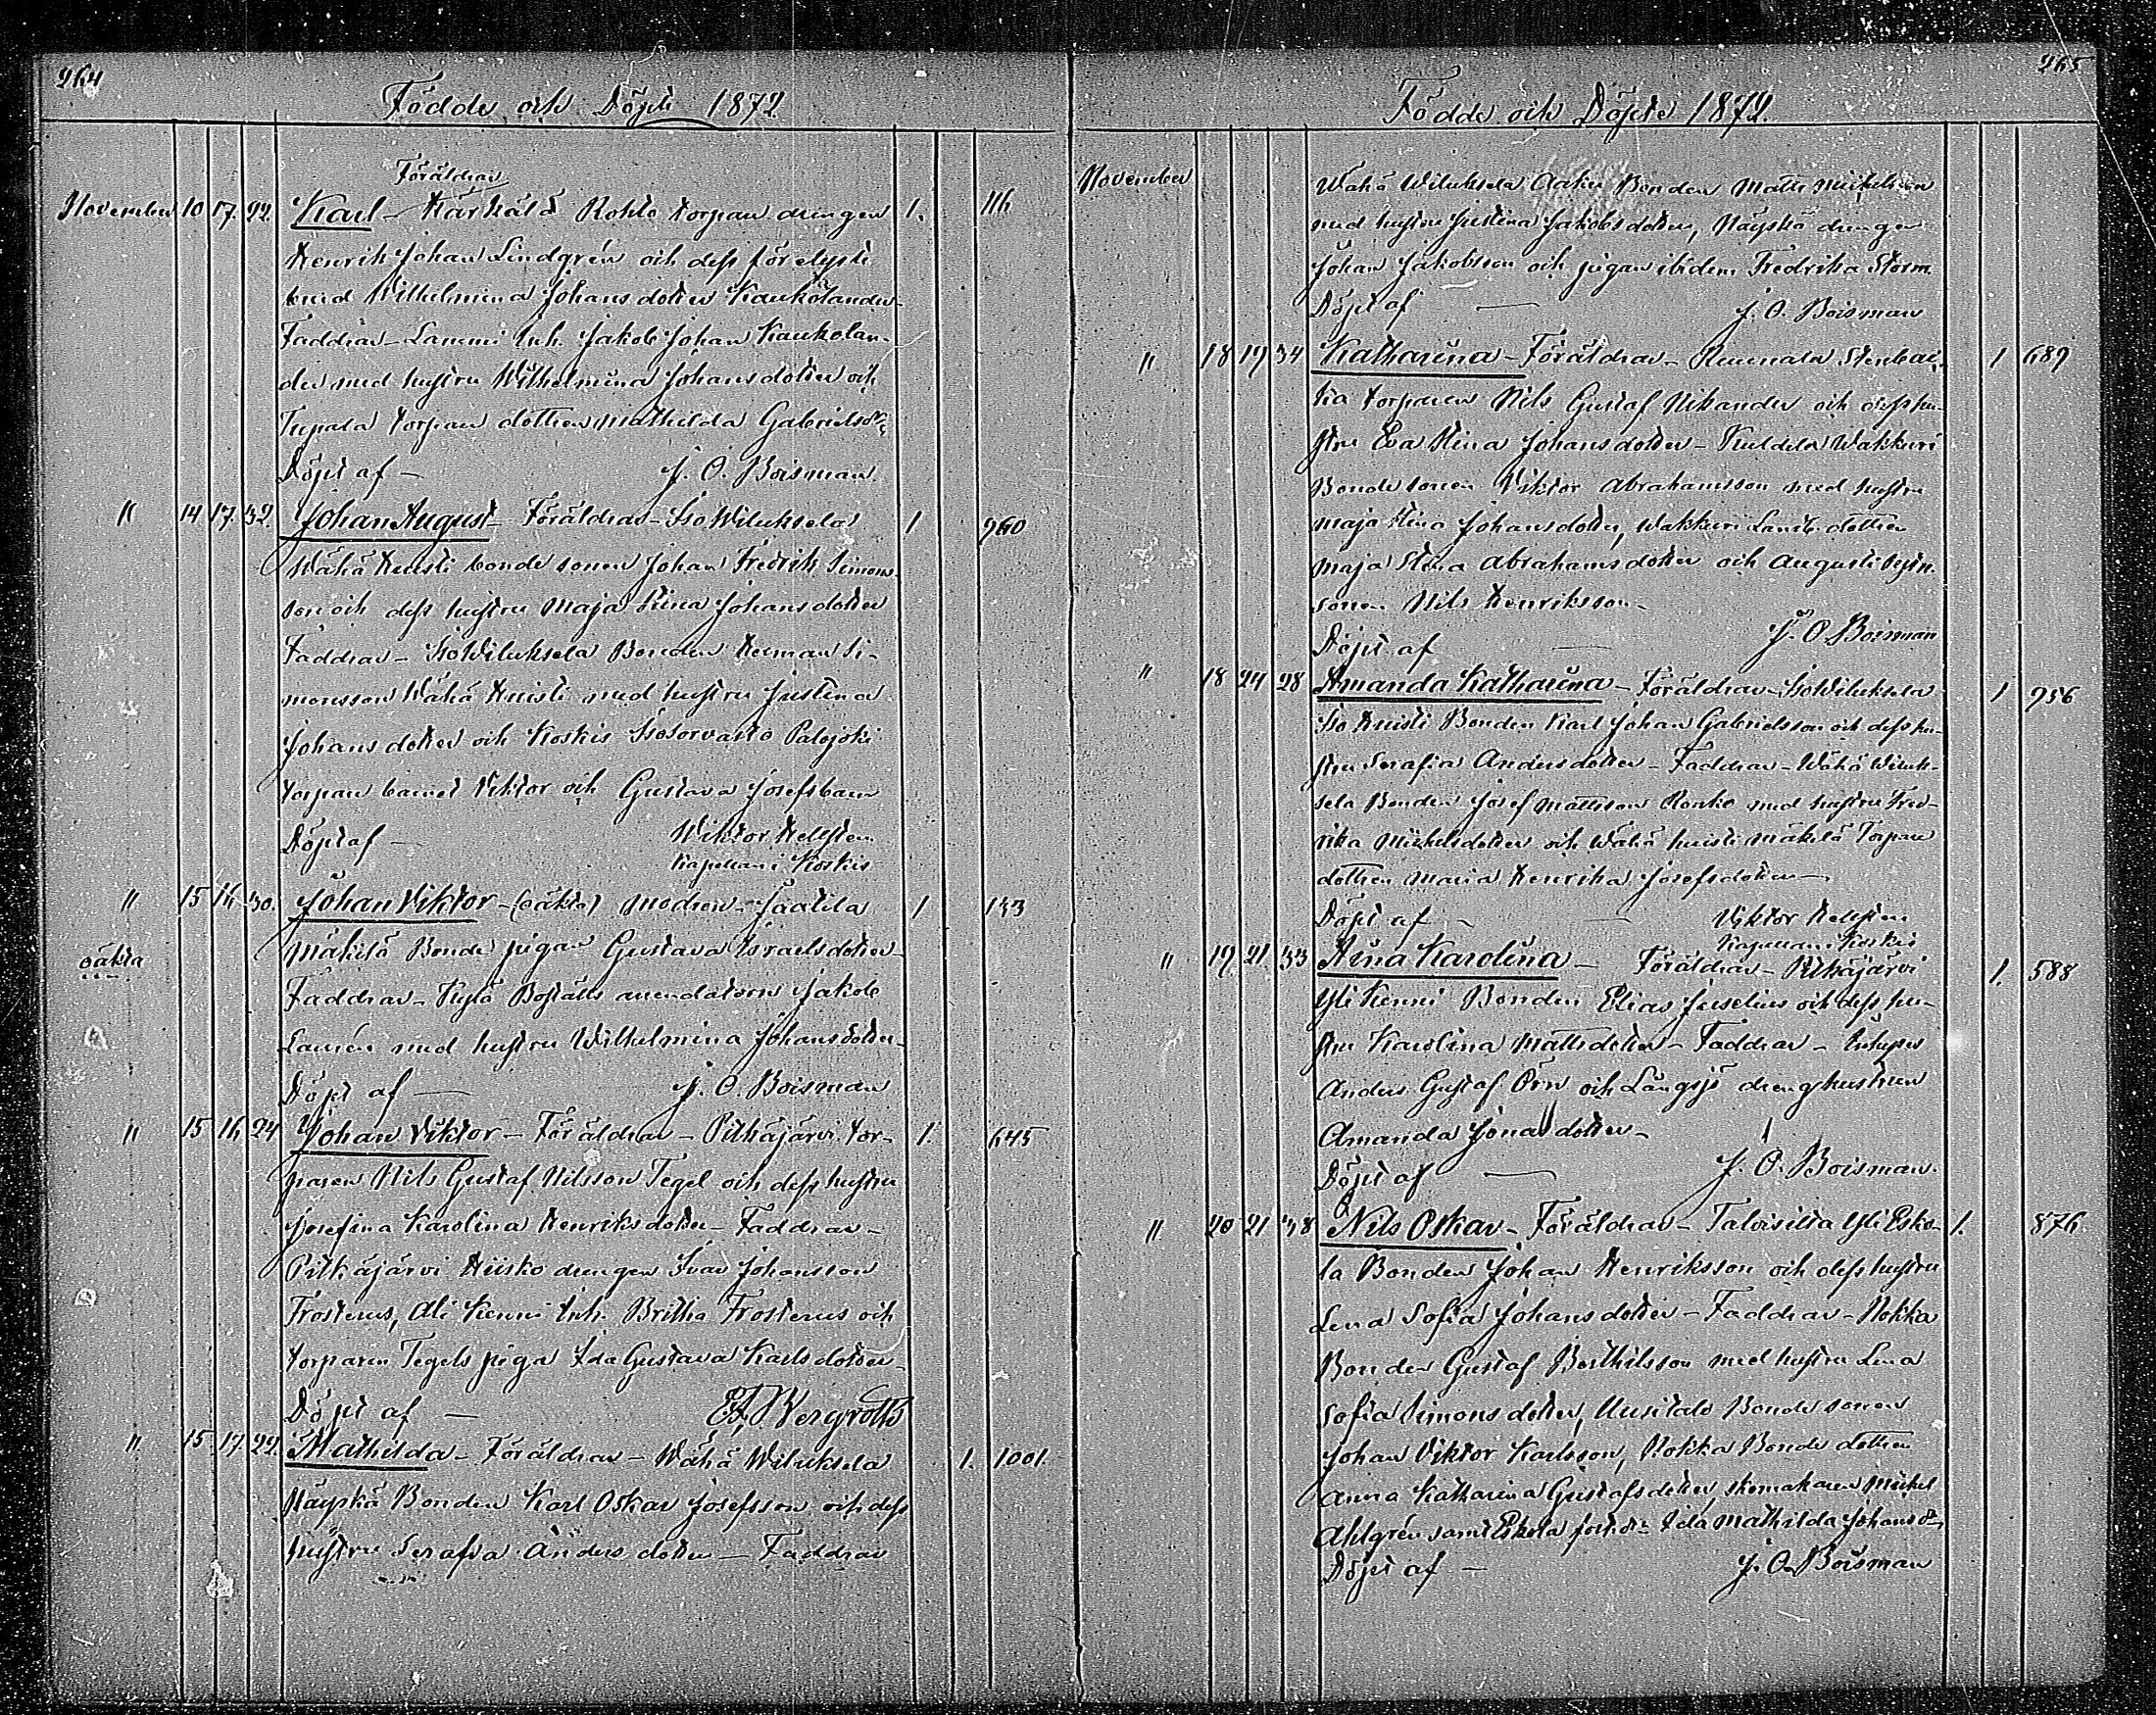 264
Födde och Döpte 1872
Föräldrar
November 10 17. 22. Karl - Härkälä Rohto torpan drengen 1. 116
Henrik Johan Lindgrén och dess förelysti
brud Wilhelmina Johansdotter Kaukolander-
Faddrar - Lammi Inh. Jakob Johan Kaukolan-
der med hustru Wilhelmina Johansdotter och
torpare dottren Mathilda Gabrielsdr
Döpt af - J. O. Boisman.
" 14 17. 32. Johan August - Föräldrar - Iso Wiluksela 1 960
Wähä Huisti bonde sonen Johan Fredrik Simons-
son och dess hustru Maja Stina Johansdotter
Faddrar - Iso Wiluksela Bonden Herman Si-
monsson Wähä Huisti med hustru Justina
Johansdotter och Koskis Isosorvasto Palojoki
torpare barnet Viktor och Gustava Josefsbarn
Döpt af - Wiktor Hellsten
Kapellan i Koskis
" 15 16 30. Johan Viktor - (oäkta) modren - Jaatila 1 143
oäkta
Mäkilä Bonde pigan Gustava Israelsdotter -
Faddrar - Kylä Boställs arendatorn Jakob
Laurén med hustru Wilhelmina Johansdotter -
Döpt af - J. O. Boisman
" 15 16 24 Johan Viktor - Föräldrar - Pitkäjärvi tor- 1. 645
paren Nils Gustaf Nilsson Tegel och dess hustru
Josefina Karolina Henriksdotter - Faddrar -
Pitkäjärvi Hiisko drengen Ivar Johansson
Frosterus, Ali Kenni Inh. Britha Frosterus och
torparen Tegels piga Ida Gustava Karlsdotter -
Döpt af - Bergroth
" 15. 17. 22. Mathilda - Föräldrar - Wähä Wiluksela 1. 1001.
Näyskä Bonden Karl Oskar Josefsson och dess
hustru Serafia Andersdotter - Faddrar
265
Födde och Döpte 1872.
November
Wähä Wiluksela Aaku Bonden Matts Mickelsson
med hustru Justina Jakobsdotter, Näyskä drengen
Johan Jakobsson och pigan ibidem Fredrika Storm
Döpt af - J. O. Boisman
" 18 19 34 Katharina - Föräldrar - Stenbac- 1 689
ka torparen Nils Gustaf Nikander och dess hu-
stru Eva Stina Johansdotter - Wakkuri
Bonde sonen Viktor Abrahamsson med hustru
Maja Stina Johansdotter, Wakkuri dottren
Maja Stina Abrahamsdotter och Augusti
sonen Nils Henriksson -
Döpt af - J. O. Boisman
" 18 24 28 Amanda Katharina - Föräldrar - Iso Wiluksela 1 956
Iso Huisti Bonden Karl Johan Gabrielsson och dess hu-
stru Serafia Andersdotter - Faddrar - Wähä Wiluk-
sela Bonden Josef Mattsson Ronko med hustru Fred-
rika Mickelsdotter och Wähä huisti mäkilä Torpare
dottren Maria Henrika Josefsdotter -
Döpt af - Viktor Hellsten
Kapellan i Koskis
" 19. 21. 33 Stina Karolina - Föräldrar - Pitkäjärvi 1. 588
Yli Kenni Bonden Elias Juselius och dess hu-
stru Karolina Mattsdotter - Faddrar - Inhyses
Anders Gustaf Örn och Långsjö dreng hustrun
Amanda Jonasdotter -
Döpt af - J. O. Boisman.
" 20 21 38 Nils Oskar - Föräldrar - Talvisilta Yli Esko- 1. 876
la Bonden Johan Henriksson och dess hustru
Lena Sofia Johansdotter - Faddrar - Rokka
Bonden Gustaf Berthilsson med hustru Lena
Sofia Simonsdotter, Uusitalo Bonde sonen
Johan Viktor Karlsson, Rokka Bonde dottren
Anna Katharina Gustafsdotter, skomakaren Mickel
Ahlgrén samt Eskola Ida Mathilda Johansdr
Döpt af - J. O. Boisman